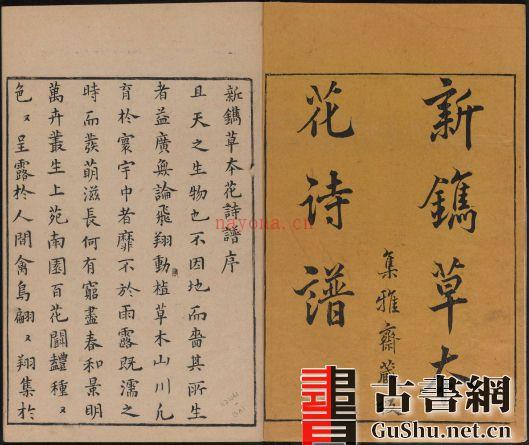 新鐫草本
花诗譜
集雅齋藏
新鐫草本花詩譜序
且天之生物也不因地而嗇其所生
者益廣無論飛翔動植草木山川凡
育於寰宇中者靡不於雨露既濡之
時而發萌滋長何有窮盡春和景明
萬卉叢生上苑南園百花鬪豔種〻
色〻呈露於人間禽鳥翩〻翔集於
nayona.cn
古書網
GuShu.net.cn